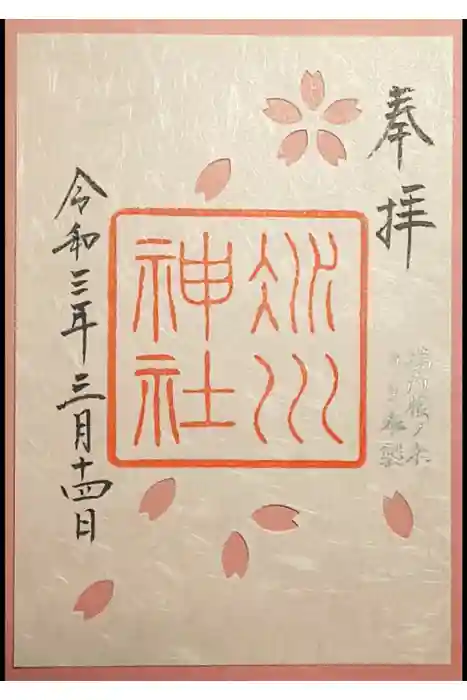 奉拝
冰川
神社
令和三年三月十四日